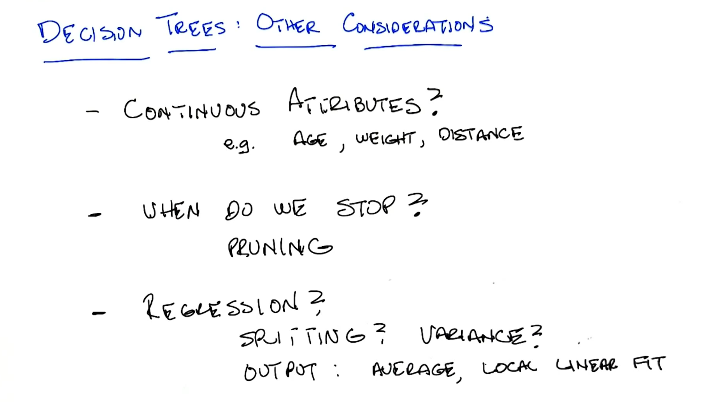 DECISION TREES: OTHER CONSIDERATIONS
- CONTINUOUS ATTRIBUTES?
e.g. AGE, WEIGHT, DISTANCE
- WHEN DO WE STOP?
PRUNING
- REGRESSION?
SPLITTING? VARIANCE?
OUTPUT: AVERAGE, LOCAL LINEAR FIT